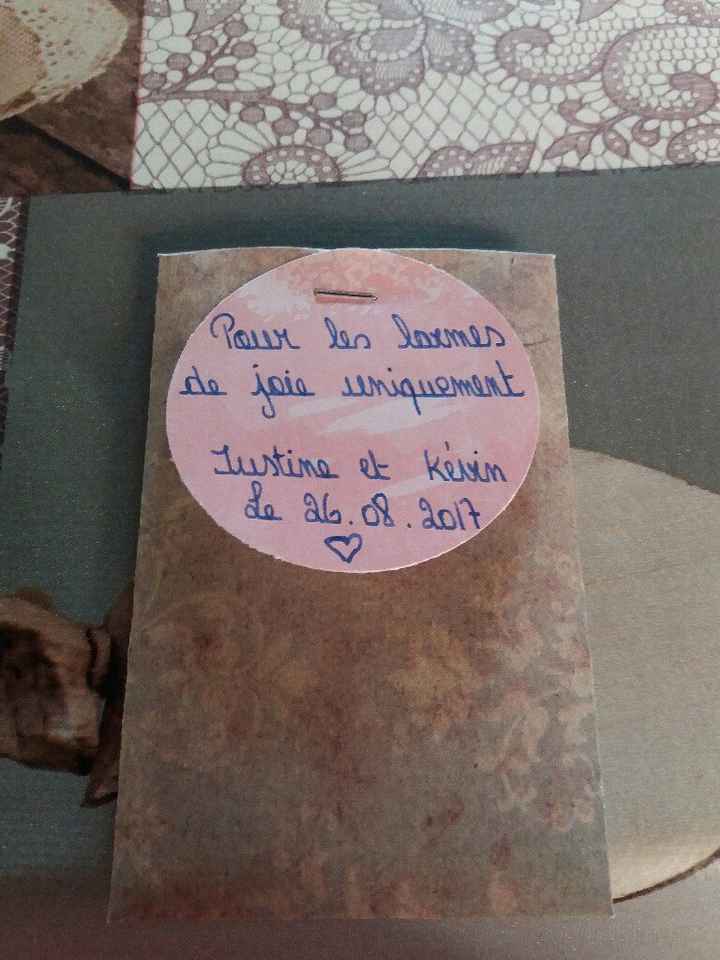 Pour les larmes
de joie uniquement
Justine et Kévin
Le 26.08.2017